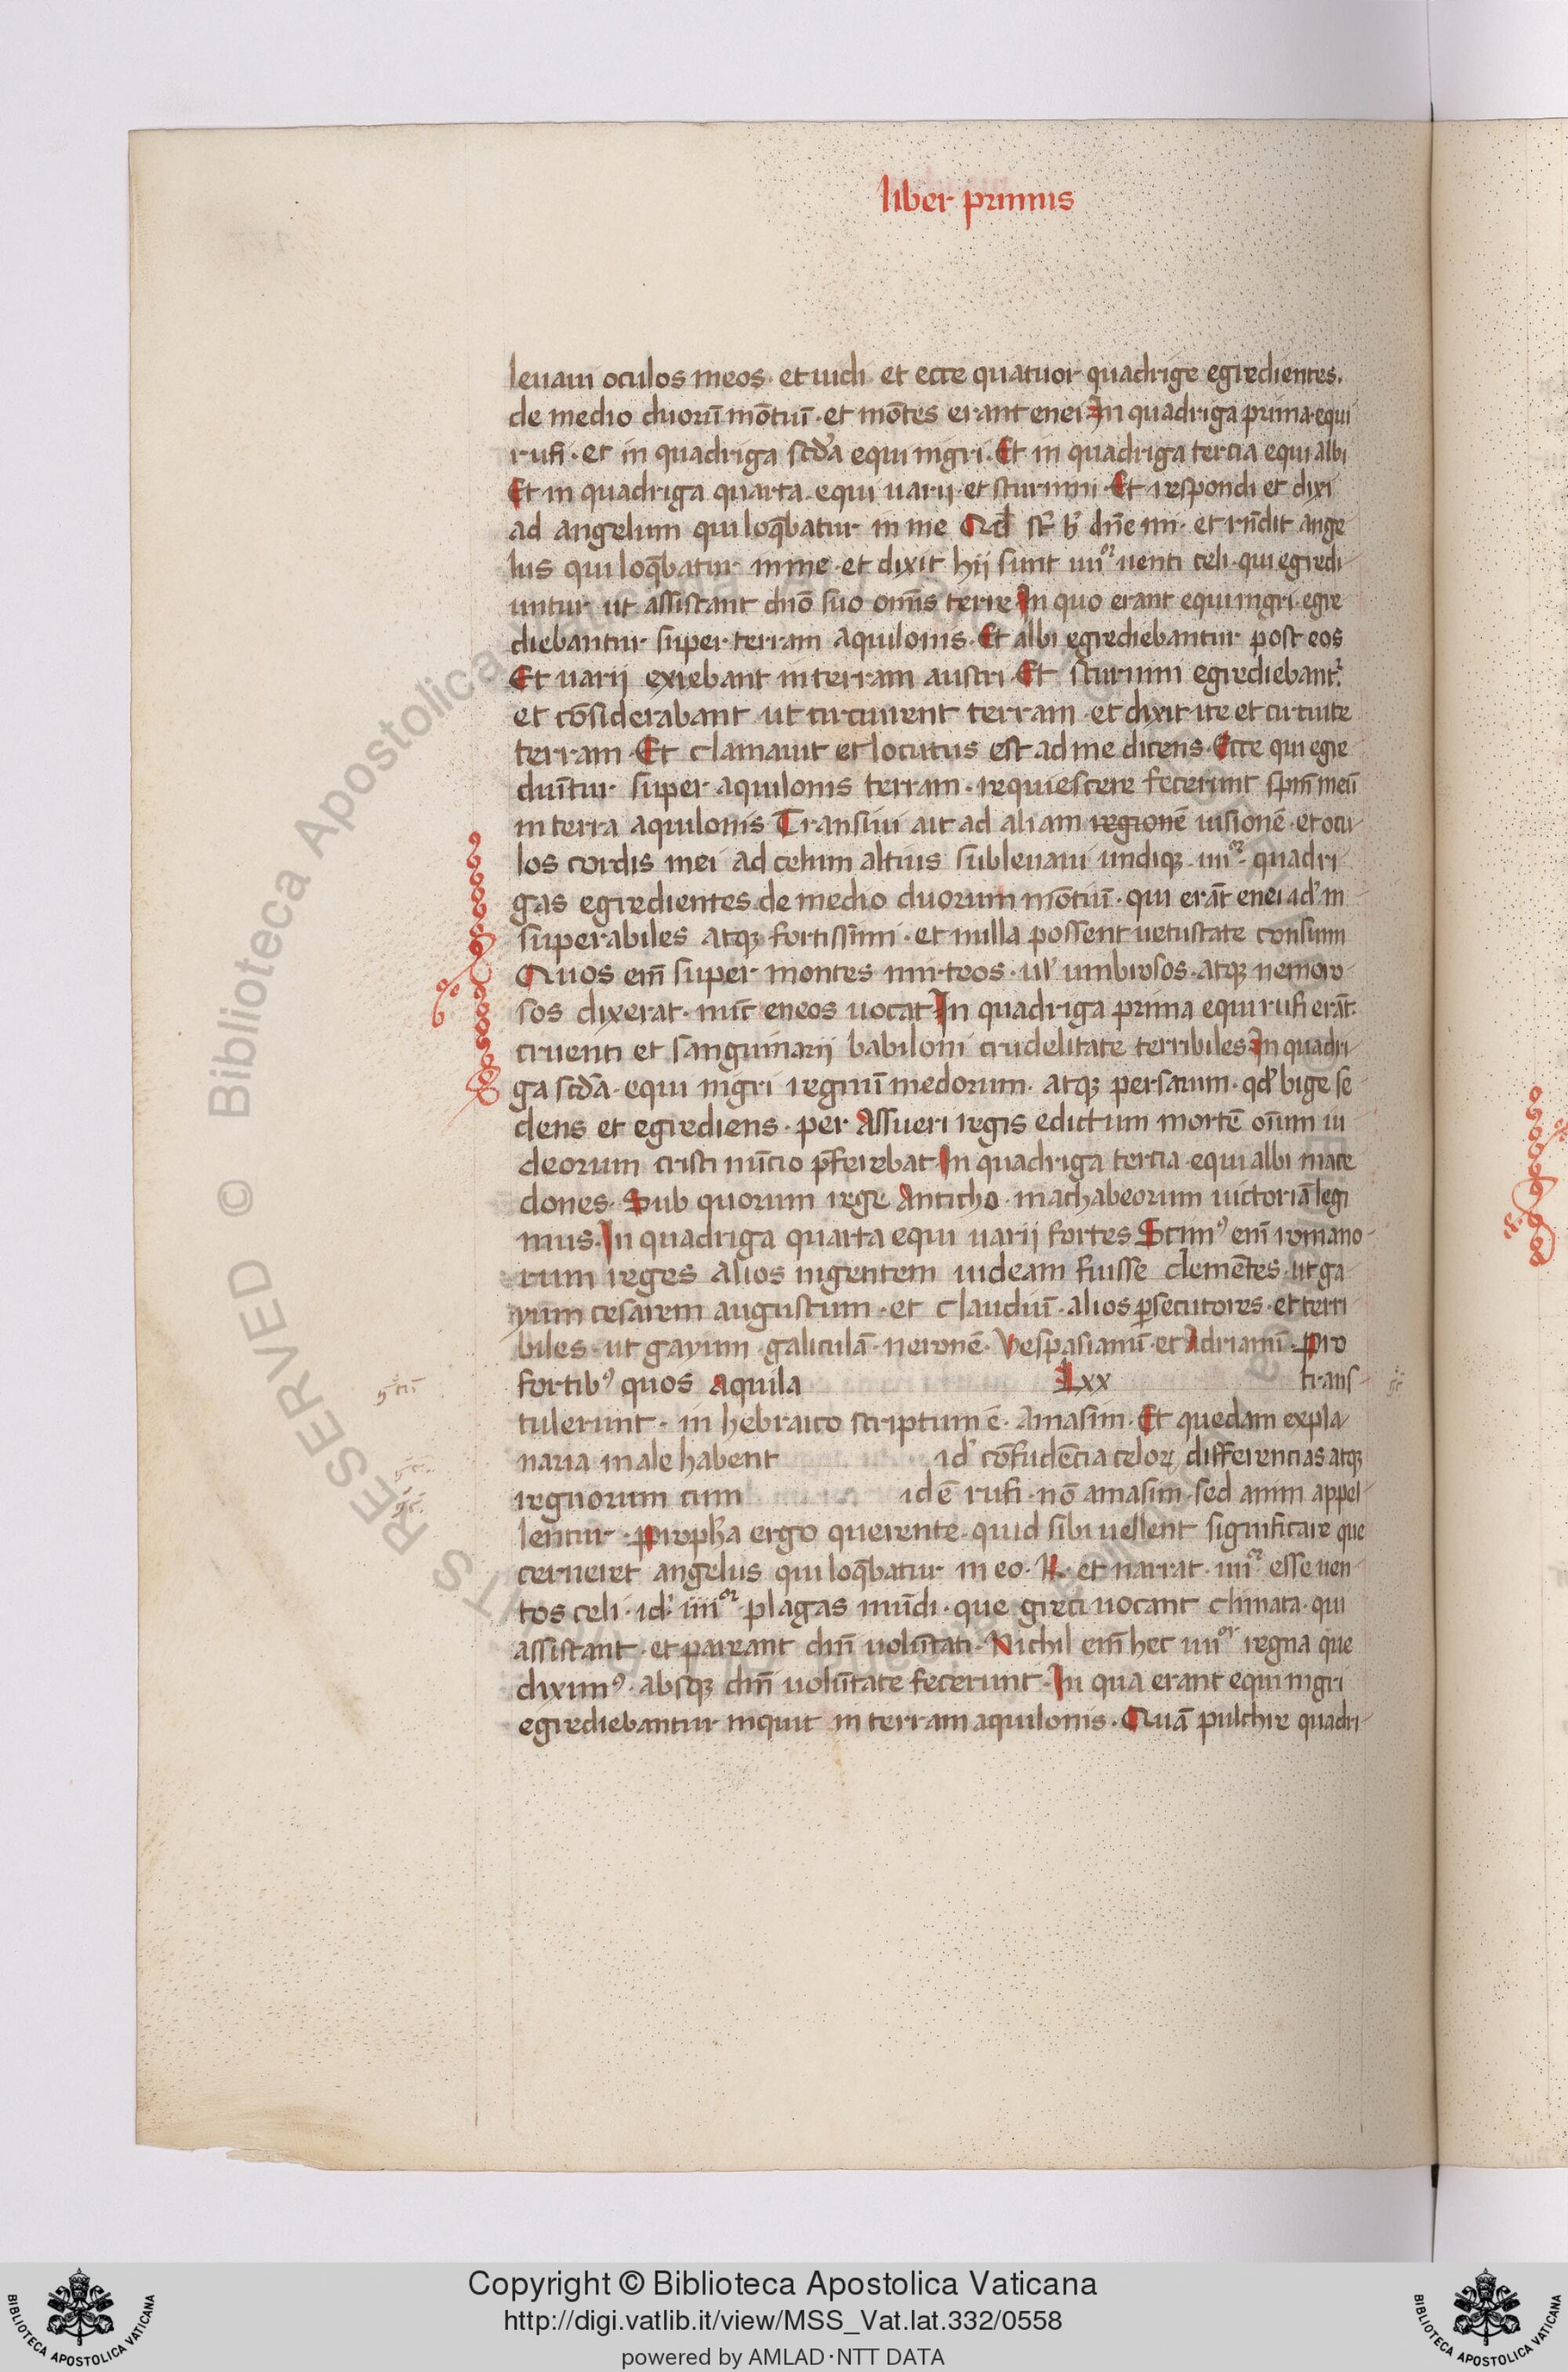 liber primus
leuaui oculos meos· et uidi· et ecce quatuor quadrige egredientes.
de medio duorū mōtiū· et mōtes erant enei In quadriga prima equi
rufi· et in quadriga scďa equi nigri· Et in quadriga tercia equi albi
Et in quadriga quarta equi uarij· et sturnini· Et respondi et dixi
ad angelum qui loq̄batur in me Qd̄ st̄ h̄ dn̄e mi· et rn̄dit ange
lus qui loq̄batur in me· et dixit hij sunt iiiiᵒʳ uenti celi· qui egredi
untur ut assistant dnō suo om̄s terre In quo erant equi nigri· egre
diebantur super terram aquilonis· Et albi egrediebantur post eos
Et uarij exiebant in terram austri· Et sturnini egrediebant᷑
et cōsiderabant ut circuirent terram· et dixit ite et circuite
terram· Et clamauit et locutus est ad me dicens· Ecce qui egre
diūtur super aquilonis terram· requiescere fecerunt spm̄ meū
in terra aquilonis· Transiui ait ad aliam regionē uisionē· et ocu
los cordis mei ad celum altius subleuaui undiqꝫ· iiiiᵒʳ· quadri
gas egredientes de medio duorum mōtiū· qui erāt enei· id᷑ in
superabiles atqꝫ fortissimi· et nulla possent uetustate consumi
Quos em̄ super montes mirteos· ul᷑ umbrosos· atqꝫ nemoro
sos dixerat· nūc eneos uocat In quadriga prima equi rufi erāt·
cruenti et sanguinarij babiloni crudelitate terribiles In quadri
ga scďa· equi nigri regnū medorum· atqꝫ persarum· qd᷑ bige se
dens et egrediens· per Assueri regis edictum mortē oīum iu
deorum tristi nūcio p̄ferebat· In quadriga tercia· equi albi mace
dones· Sub quorum rege Anticho· machabeorum uictoriā legi
mus· In quadriga quarta equi uarij fortes Scim᷒ em̄ romano
rum reges alios in gentem iudeam fuisse clemētes· ut ga
yum cesarem augustum· et claudiū· alios ꝑsecutores· et terri
biles· ut gayum galiculā· neronē· Vespasianū· et Adrianū· Pro
fortib᷒ quos Aquila Lxx trans
tulerunt· in hebraico scriptum ē· Amasim· Et quedam expla
naria male habent id᷑ cōfudēcia celoꝝ differencias atqꝫ
regnorum cum id ē rufi· nō amasim· sed anim appel
lentur· Proph̄a ergo querente· quid sibi uellent significare que
cerneret angelus qui loq̄batur in eo· R· et narrat· iiiiᵒʳ esse uen
tos celi· id᷑· iiiiᵒʳ plagas mūdi· que greci uocant climata· qui
assistant· et pareant dn̄i volūtati· Nichil em̄ hec iiiiᵒʳ regna que
dixim᷒· absqꝫ dn̄i uolūtate fecerunt· In qua erant equi nigri
egrediebantur inquit in terram aquilonis· Quā pulchre quadri
Copyright © Biblioteca Apostolica Vaticana
http://digi.vatlib.it/view/MSS_Vat.lat.332/0558
powered by AMLAD·NTT DATA